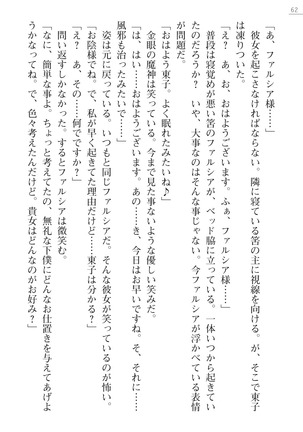 62
「あ、ファルシア様……」
彼女を起こさなければならない。隣に寝ている筈の主に視線を向ける。が、そこで東子
は凍りついた。
「え？ あ、お、おはようございます。ふぁ、ファルシア様……」
普段は寝覚めが悪い筈のファルシアが、ベッド脇に立っている。一体いつから起きてい
たのだろうか？ いや、大事なのはそんな事じゃない。今ファルシアが浮かべている表情
が問題だ。
「おはよう東子。よく眠れたみたいね♪」
金眼の魔神は笑っている。今まで見た事ないような優しい笑みだ。
「は、はい……おはようございます。あの……き、今日はお早いですね。そ、それに……
風邪も治ったみたいで……」
「お陰様でね。で、私が早く起きてた理由だけど……東子は分かる？」
姿は元に戻っている。いつもと同じファルシアだ。そんな彼女が笑っているのが怖い。
「え？ あ、その……何ですか？」
問い返すしかなかった。するとファルシアは微笑む。
「な、簡単な事よ。ちょっと考えてたの、無礼な下僕にどんなお仕置きを与えてあげよ
うかなってね。で、色々考えたんだけど。貴女はどんなのがお好み？」